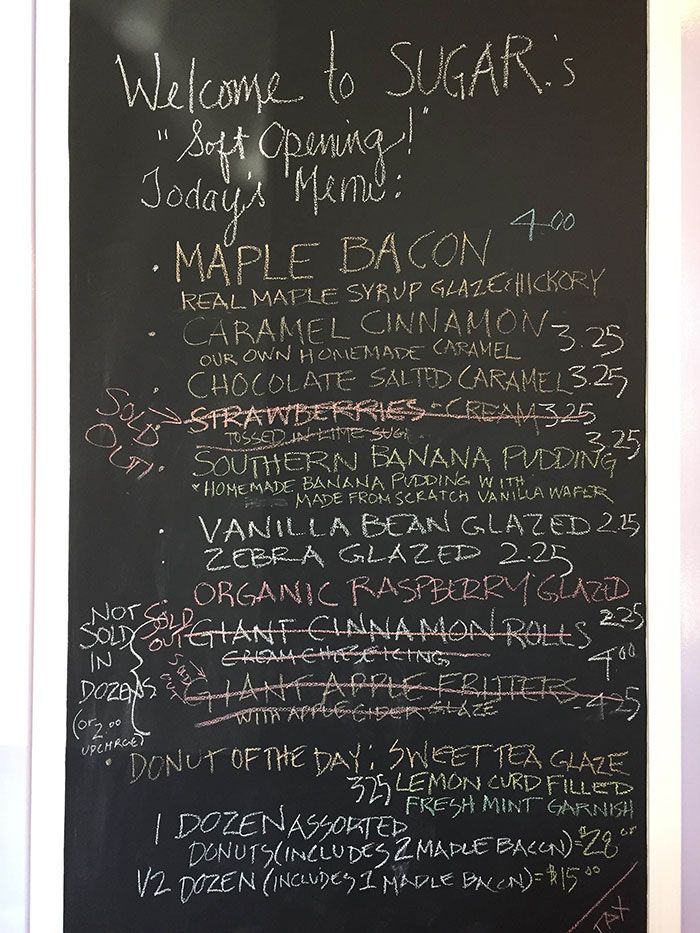 Welcome to SUGAR:s
"Soft Opening!"
Today's Menu:
4.00
MAPLE BACON
REAL MAPLE SYRUP GLAZE & HICKORY
CARAMEL CINNAMON 3.25
OUR OWN HOMEMADE CARAMEL
CHOCOLATE SALTED CARAMEL 3.25
SOLD OUT! STRAWBERRIES - CREAM 3.25
TOSSED IN LIME SUGAR
3.25
SOUTHERN BANANA PUDDING
*HOMEMADE BANANA PUDDING WITH
MADE FROM SCRATCH VANILLA WAFER
VANILLA BEAN GLAZED 2.25
ZEBRA GLAZED 2.25
ORGANIC RASPBERRY GLAZED
2.25
NOT SOLD IN DOZENS (or 2.00 UPCHRGE)
SOLD OUT GIANT CINNAMON ROLLS
CREAM CHEESE ICING 4.00
GIANT APPLE FRITTERS 4.25
WITH APPLE CIDER GLAZE
DONUT OF THE DAY: SWEET TEA GLAZE
3.25 LEMON CURD FILLED
FRESH MINT GARNISH
1 DOZEN ASSORTED
DONUTS (INCLUDES 2 MAPLE BACON) = $28.00
1/2 DOZEN (INCLUDES 1 MAPLE BACON) = $15.00
TAX